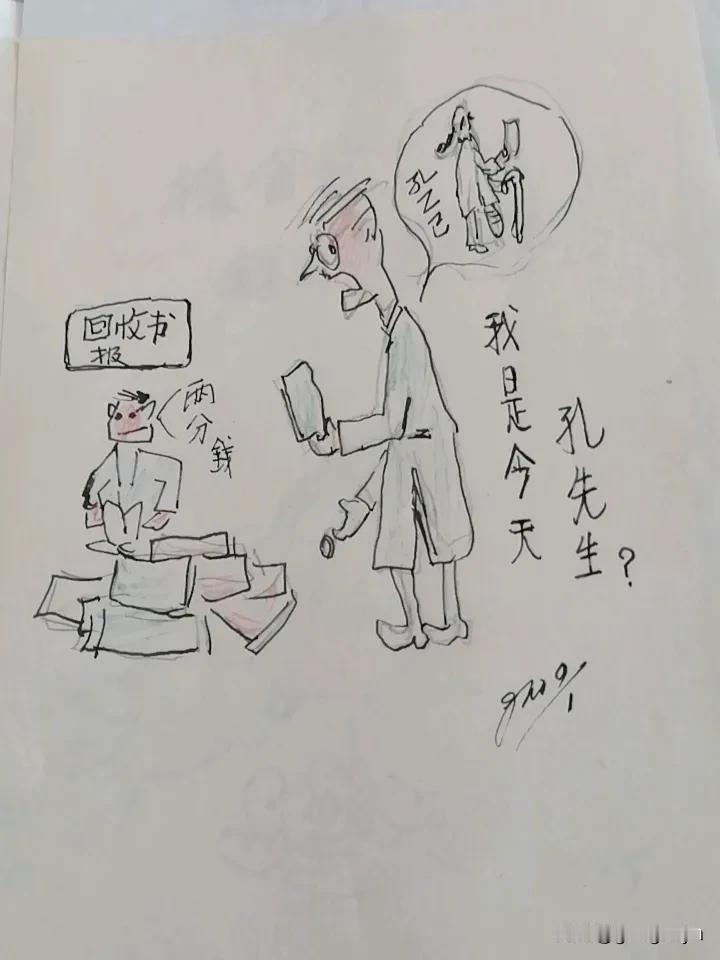 孔乙己
回收书
报
两分錢
我是今天
孔先生?